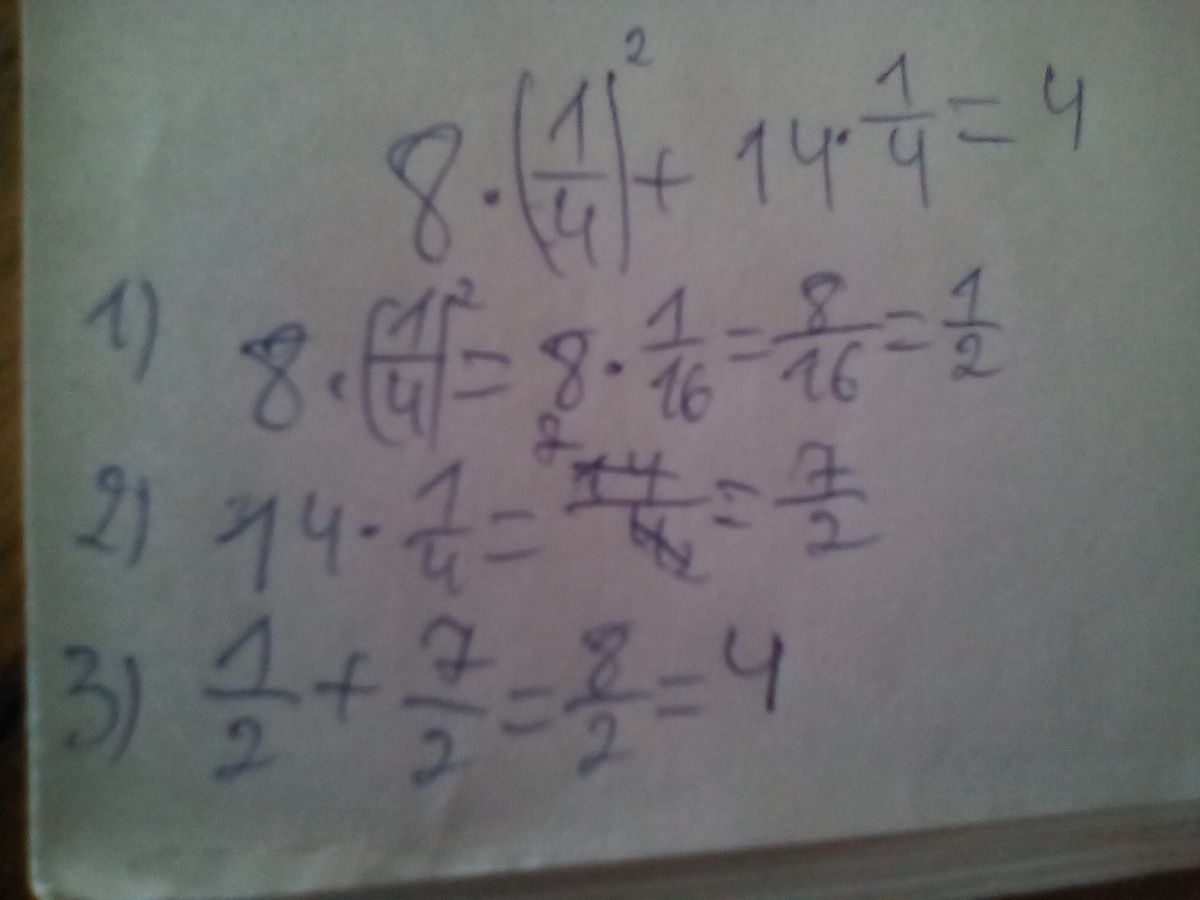 8 · (1/4)² + 14 · 1/4 = 4
1) 8 · (1/4)² = 8 · 1/16 = 8/16 = 1/2
2) 14 · 1/4 = ⁷14/4₂ = 7/2
3) 1/2 + 7/2 = 8/2 = 4